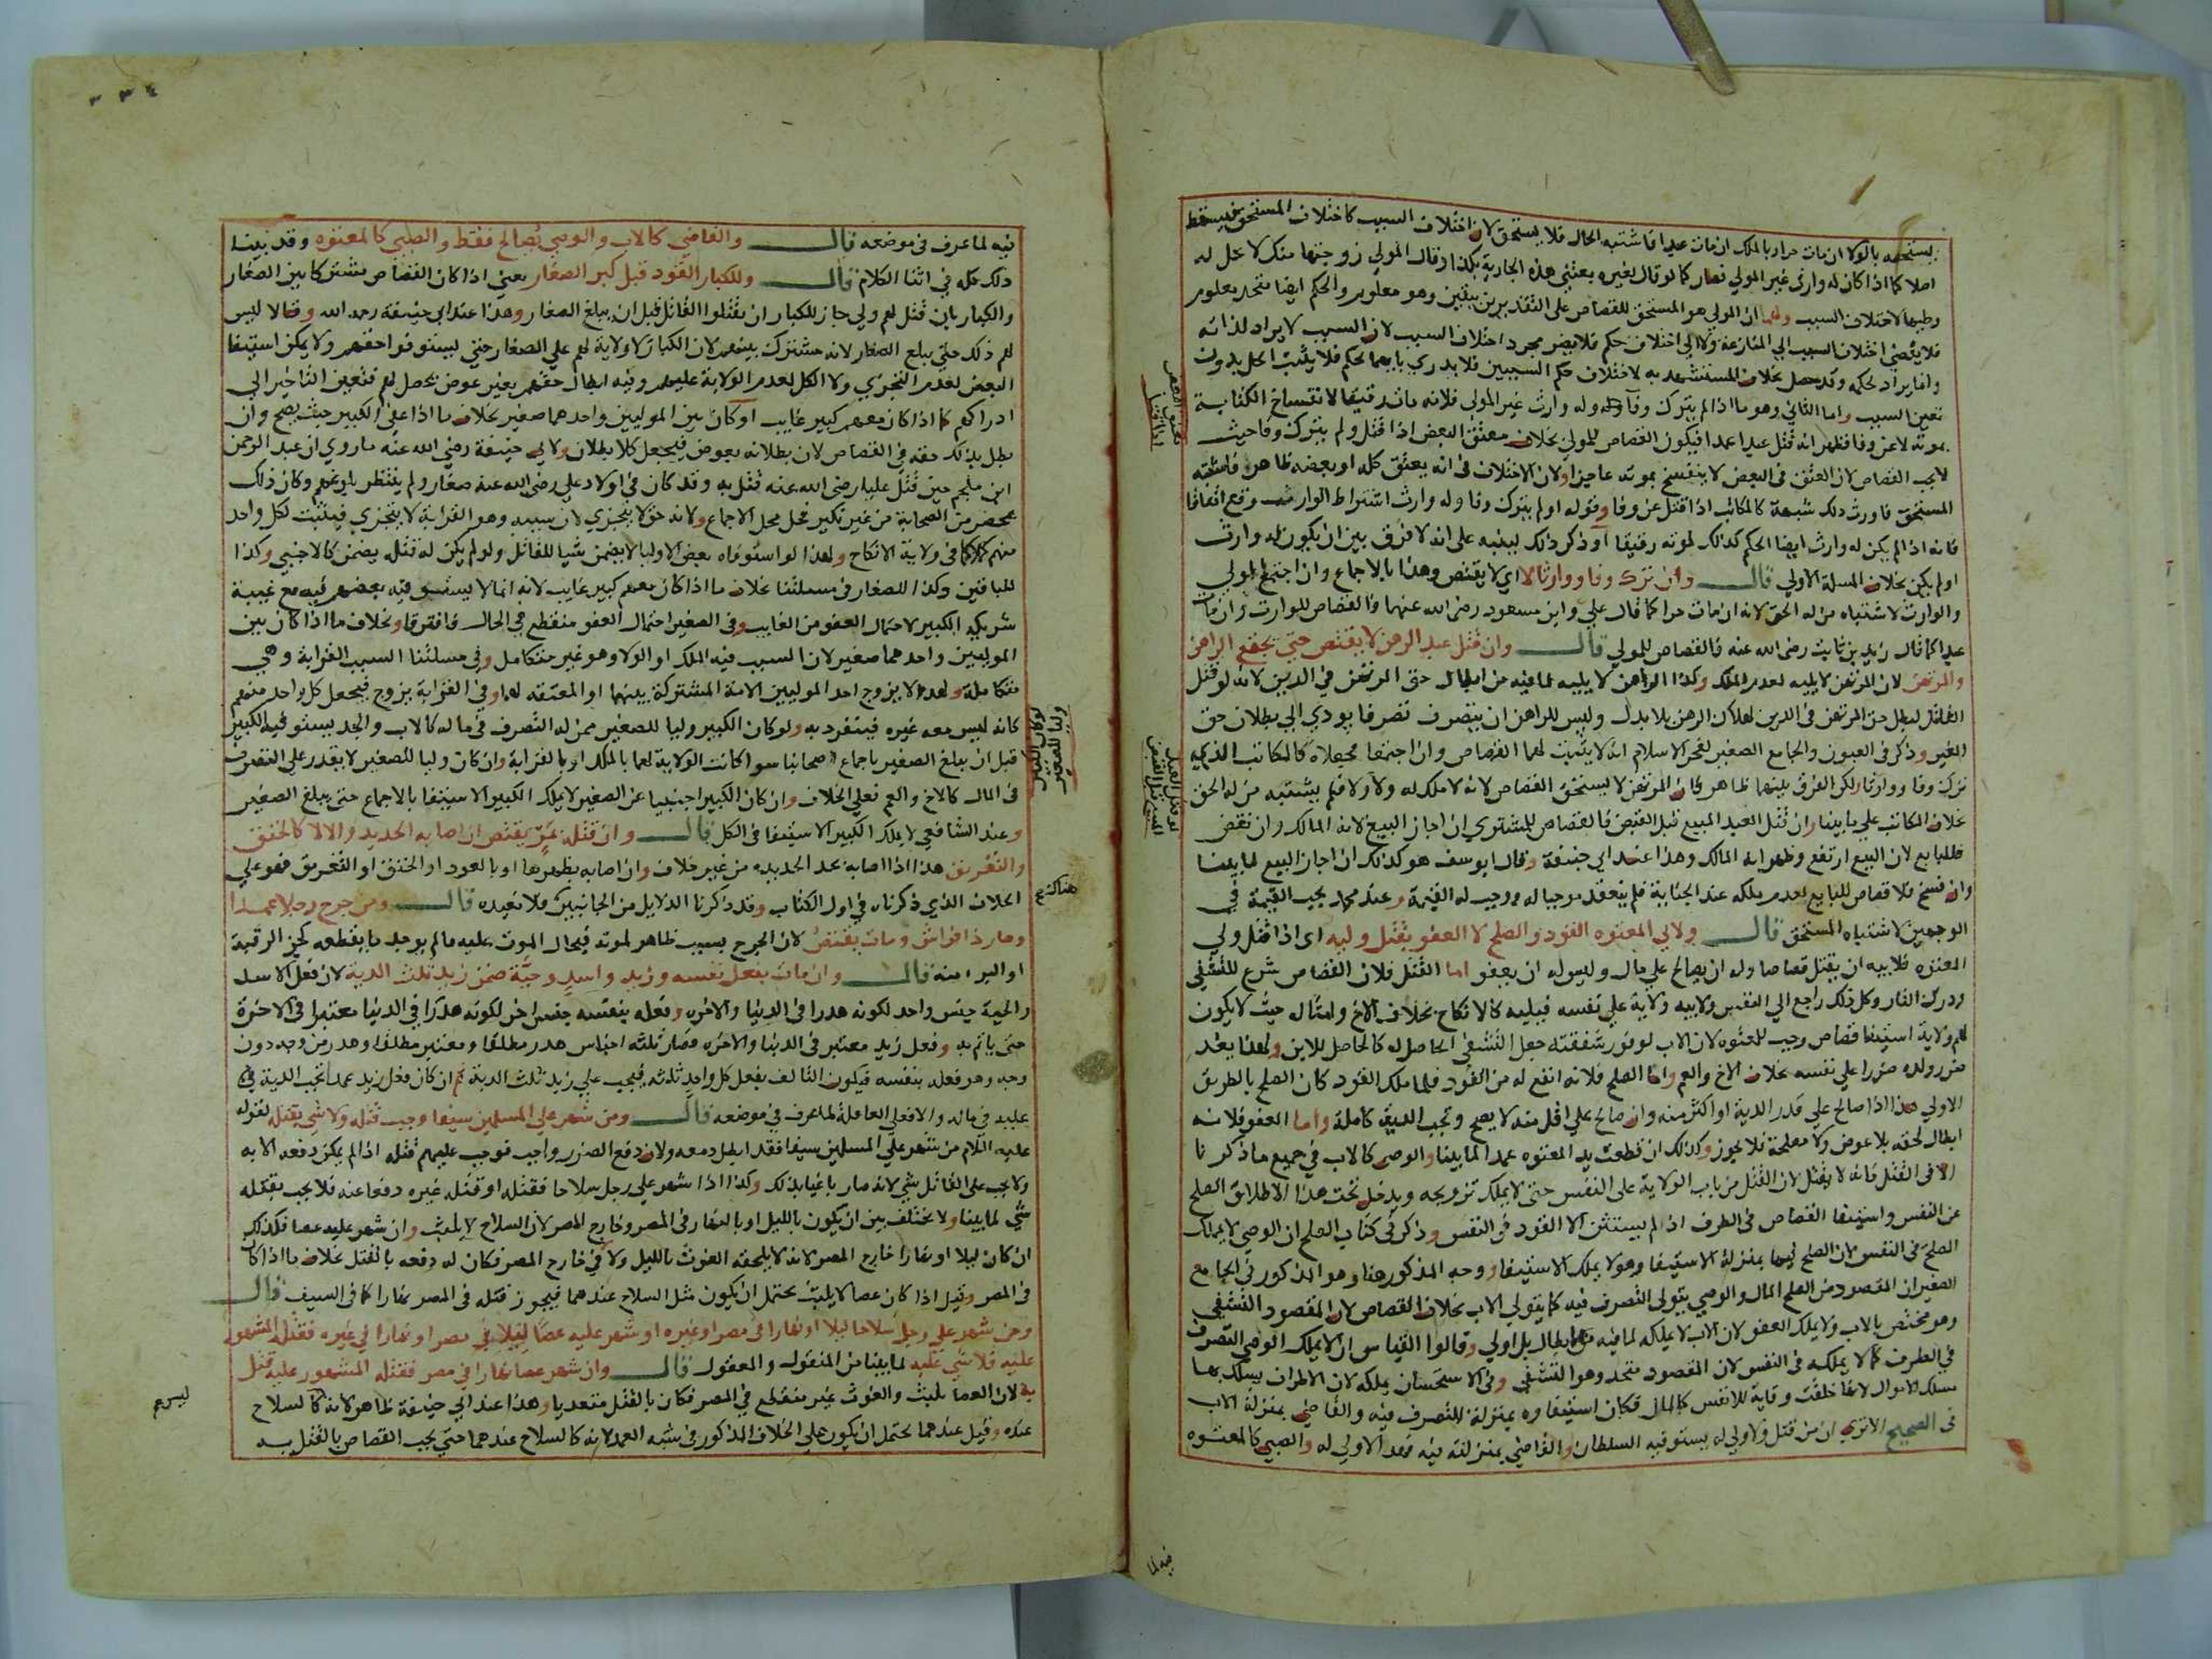 يستحقه بالولا ان مات حرا وبالملك ان مات عبدا فاشتبه الحال فلا يستحق لان اختلاف السبب كاختلاف المستحق فيسقط
اصلا كما اذا كان له وارث غير المولي فصار كما لو قال لغيره بعتني هذه الجارية بكذا وقال المولي زوجتها منك لا يحل له
وطيها لاختلاف السبب ولهما ان المولي هو المستحق للقصاص على التقديرين بيقين وهو معلوم والحكم ايضا متحد معلوم
فلا يفضي اختلاف السبب الي المنازعة ولا الي اختلاف حكم فلا يضر مجرد اختلاف السبب لان السبب لا يراد لذاته
وانما يراد لحكمه وقد حصل بخلاف المستشهد به لاختلاف حكم السببين فلا يدري بايهما يحكم فلا يثبت الحل بدون
تعين السبب واما الثاني وهو ما اذا لم يترك وفا وله وارث غير المولى فلانه مات رقيقا لانفساخ الكتابة
بموته لا عن وفا فظهر انه قتل عبدا عمدا فيكون القصاص للمولي بخلاف معتق البعض اذا قتل ولم يترك وفا حيث
لا يجب القصاص لان العتق في البعض لا ينفسخ بموته عاجزا ولان الاختلاف في انه يعتق كله او بعضه ظاهر فاشتبه
المستحق فاورث ذلك شبهة كالمكاتب اذا قتل عن وفا وقوله او لم يترك وفا وله وارث اشتراط الوارث وقع اتفاقا
فانه اذا لم يكن له وارث ايضا الحكم كذلك لموته رقيقا او ذكر ذلك لينبه على انه لا فرق بين ان يكون له وارث
او لم يكن بخلاف المسلة الاولي قال وان ترك وفا ووارثا لا اي لا يقتص وهذا بالاجماع وان اجتمع المولي
والوارث لاشتباه من له الحق لانه ان مات حرا كما قال علي وابن مسعود رضى الله عنهما فالقصاص للوارث وان مات
عبدا كما قال زيد بن ثابت رضى الله عنه فالقصاص للمولي قال وان قتل عبد الرهن لا يقتص حتي يجتمع الراهن
والمرتهن لان المرتهن لا يليه لعدم الملك وكذا الراهن لا يليه لما فيه من ابطال حق المرتهن في الدين لانه لو قتل
القاتل لبطل حق المرتهن في الدين لهلاك الرهن بلا بدل وليس للراهن ان يتصرف تصرفا يودي الي بطلان حق
الغير وذكر في العيون والجامع الصغير لفخر الاسلام انه لا يثبت لهما القصاص وان اجتمعا فجعلاه كالمكاتب الذي
ترك وفا ووارثا ولكن الفرق بينهما ظاهر فان المرتهن لا يستحق القصاص لانه لا ملك له ولا ولا فلم يشتبه من له الحق
بخلاف المكاتب علي ما بينا وان قتل العبد المبيع قبل القبض فالقصاص للمشتري ان اجاز البيع لانه المالك وان نقض
فللبايع لان البيع ارتفع وظهر انه المالك وهذا عند ابي حنيفة وقال ابو يوسف هو كذلك ان اجاز البيع لما بينا
وان فسخ فلا قصاص للبايع لعدم ملكه عند الجناية فلم ينعقد موجبا له ووجب له القيمة وعند محمد يجب القيمة في
الوجهين لاشتباه المستحق قال ولابي المعتوه القود والصلح لا العفو بقتل وليه اى اذا قتل ولي
المعتوه فلابيه ان يقتل قصاصا وله ان يصالح علي مال وليس له ان يعفو اما القتل فلان القصاص شرع للتشفي
ودرك الثار وكل ذلك راجع الي النفس ولابيه ولاية علي نفسه فيليه كالانكاح بخلاف الاخ وامثاله حيث لا يكون
لهم ولاية استيفا قصاص وجب للمعتوه لان الاب لوفور شفقته جعل التشفي الحاصل له كالحاصل للابن ولهذا يعد
ضرر ولده ضررا علي نفسه بخلاف الاخ والعم واما الصلح فلانه انفع له من القود فلما ملك القود كان الصلح بالطريق
الاولي هذا اذا صالح علي قدر الدية او اكثر منه وان صالح علي اقل منه لا يصح وتجب الدية كاملة واما العفو فلانه
ابطال لحقه بلا عوض ولا مصلحة فلا يجوز وكذلك ان قطعت يد المعتوه عمدا لما بينا والوصي كالاب في جميع ما ذكرنا
الا في القتل فانه لا يقتل لان القتل من باب الولاية على النفس حتى لا يملك تزويجه ويدخل تحت هذا الاطلاق الصلح
عن النفس واستيفا القصاص في الطرف اذ لم يستثن الا القود في النفس وذكر في كتاب الصلح ان الوصي لا يملك
الصلح في النفس لان الصلح فيها بمنزلة الاستيفا وهو لا يملك الاستيفا ووجه المذكور هنا وهو المذكور في الجامع
الصغير ان المقصود من الصلح المال والوصي يتولى التصرف فيه كما يتولي الاب بخلاف القصاص لان المقصود التشفي
وهو مختص بالاب ولا يملك العفو لان الاب لا يملكه لما فيه من الابطال بل اولي وقالوا القياس ان لا يملك الوصي التصرف
في الطرف كما لا يملكه في النفس لان المقصود متحد وهو التشفي وفي الاستحسان يملكه لان الاطراف يسلك بها
مسلك الاموال لانها خلقت وقاية للانفس كالمال فكان استيفاوه بمنزلة التصرف فيه والقاضي بمنزلة الاب
في الصحيح الا تري ان من قتل ولا ولي له يستوفيه السلطان والقاضي بمنزلته فيه فهذا اولي له والصبي كالمعتوه
فيه لما
٣٣٤
فيه لما عرف في موضعه قال والقاضي كالاب والوصي يصالح فقط والصبي كالمعتوه وقد بينا
ذلك كله في اثنا الكلام قال وللكبار القود قبل كبر الصغار يعني اذا كان القصاص مشتركا بين الصغار
والكبار بان قتل لهم ولي جاز للكبار ان يقتلوا القاتل قبل ان يبلغ الصغار وهذا عند ابي حنيفة رحمه الله وقالا ليس
لهم ذلك حتى يبلغ الصغار لانه مشترك بينهم لان الكبار لا ولاية لهم علي الصغار حتي يستوفوا حقهم ولا يمكن استيفا
البعض لعدم التجزي ولا الكل لعدم الولاية عليهم وفيه ابطال حقهم بغير عوض يحصل لهم فتعين التاخير الي
ادراكهم كما اذا كان معهم كبير غايب او كان بين الموليين واحدهما صغير بخلاف ما اذا عفي الكبير حيث يصح وان
بطل بذلك حقه في القصاص لان بطلانه بعوض فيجعل كلا بطلان ولابي حنيفة رضي الله عنه ما روي ان عبد الرحمن
ابن ملجم حين قتل عليا رضى الله عنه قتل به وقد كان في اولاد علي رضى الله عنه صغار ولم ينتظر بلوغهم وكان ذلك
بمحضر من الصحابة من غير نكير فحل محل الاجماع ولانه حق لا يتجزي لان سببه وهو القرابة لا يتجزي فيثبت لكل واحد
منهم كملا كما في ولاية الانكاح ولهذا لو استوفاه بعض الاوليا لا يضمن شيا للقاتل ولو لم يكن له قتله يضمن كالاجنبي وكذا
للباقين وكذا للصغار في مسئلتنا بخلاف ما اذا كان معهم كبير غايب لانه انما لا يستوفيه بعضهم فيه مع غيبة
شريكه الكبير لاحتمال العفو من الغايب وفي الصغير احتمال العفو منقطع في الحال فافترقا وبخلاف ما اذا كان بين
الموليين واحدهما صغير لان السبب فيه الملك او الولا وهو غير متكامل وفي مسئلتنا السبب القرابة وهي
متكاملة ولهذا لا يزوج احد الموليين الامة المشتركة بينهما او المعتقه لهما وفي القرابة يزوج فيجعل كل واحد منهم
كانه ليس معه غيره فيتفرد به ولو كان الكبير وليا للصغير ممن له التصرف في ماله كالاب والجد يستوفيه الكبير
قبل ان يبلغ الصغير باجماع اصحابنا سوا كانت الولاية لهما بالملك او بالقرابة وان كان وليا للصغير لا يقدر علي التصرف
في المال كالاخ والعم فعلي الخلاف وان كان الكبير اجنبيا عن الصغير لا يملك الكبير الاستيفا بالاجماع حتى يبلغ الصغير
وعند الشافعي لا يملك الكبير الاستيفا في الكل قال وان قتله بمر يقتص ان اصابه الحديد والا لا كالخنق
والتغريق هذا اذا اصابه بحد الحديد من غير خلاف وان اصابه بظهرها او بالعود او الخنق او التغريق فهو علي
الخلاف الذي ذكرناه في اول الكتاب وقد ذكرنا الدلايل من الجانبين فلا نعيده قال ومن جرح رجلا عمدا
وصار ذا فراش ومات يقتص لان الجرح بسبب ظاهر لموته فيحال الموت عليه ما لم يوجد ما يقطعه كحز الرقبة
او البرء منه قال وان مات بفعل نفسه وزيد واسد وحية ضمن زيد ثلث الدية لان فعل الاسد
والحية جنس واحد لكونه هدرا في الدنيا والاخرة وفعله بنفسه جنس اخر لكونه هدرا في الدنيا معتبرا في الاخرة
حتى ياثم به وفعل زيد معتبر في الدنيا والاخره فصار ثلثه اجناس هدر مطلقا ومعتبر مطلقا وهدر من وجه دون
وجه وهو فعله بنفسه فيكون التالف بفعل كل واحد ثلثه فيجب علي زيد ثلث الدية ثم ان كان فعل زيد عمدا تجب الدية
عليه في ماله والا فعلي العاقلة لما عرف في موضعه قال ومن شهر علي المسلمين سيفا وجب قتله ولا شي بقتله لقوله
عليه السلام من شهر علي المسلمين سيفا فقد ابطل دمه ولان دفع الضرر واجب فوجب عليهم قتله اذا لم يمكن دفعه الا به
ولا يجب على القاتل شي لانه صار باغيا بذلك وكذا اذا شهر علي رجل سلاحا فقتله او قتله غيره دفعا عنه فلا يجب بقتله
شي لما بينا ولا يختلف بين ان يكون بالليل او بالنهار في المصر وخارج المصر لان السلاح لا يلبث وان شهر عليه عصا فكذلك
ان كان ليلا او نهارا خارج المصر لانه لا يلحقه الغوث بالليل ولا في خارج المصر فكان له دفعه بالقتل بخلاف ما اذا كان
في المصر وقيل اذا كان عصا لا يلبث يحتمل ان يكون مثل السلاح عندهما فيجوز قتله في المصر نهارا كما في السيف قال
ومن شهر علي رجل سلاحا ليلا او نهارا في مصر او غيره او شهر عليه عصا ليلا في مصر او نهارا في غيره فقتله المشهور
عليه فلا شي عليه لما بينا من المنقول والمعقول قال وان شهر عصا نهارا في مصر فقتله المشهور عليه قتل
به لان العصا يلبث والغوث غير منقطع في المصر فكان بالقتل متعديا وهذا عند ابي حنيفة ظاهر لانه كالسلاح
عنده وقيل عندهما يحتمل ان يكون علي الخلاف المذكور في شبه العمد لانه كالسلاح عندهما حتي يجب القصاص بالقتل به
لو كان الكبير
وليا للصغير